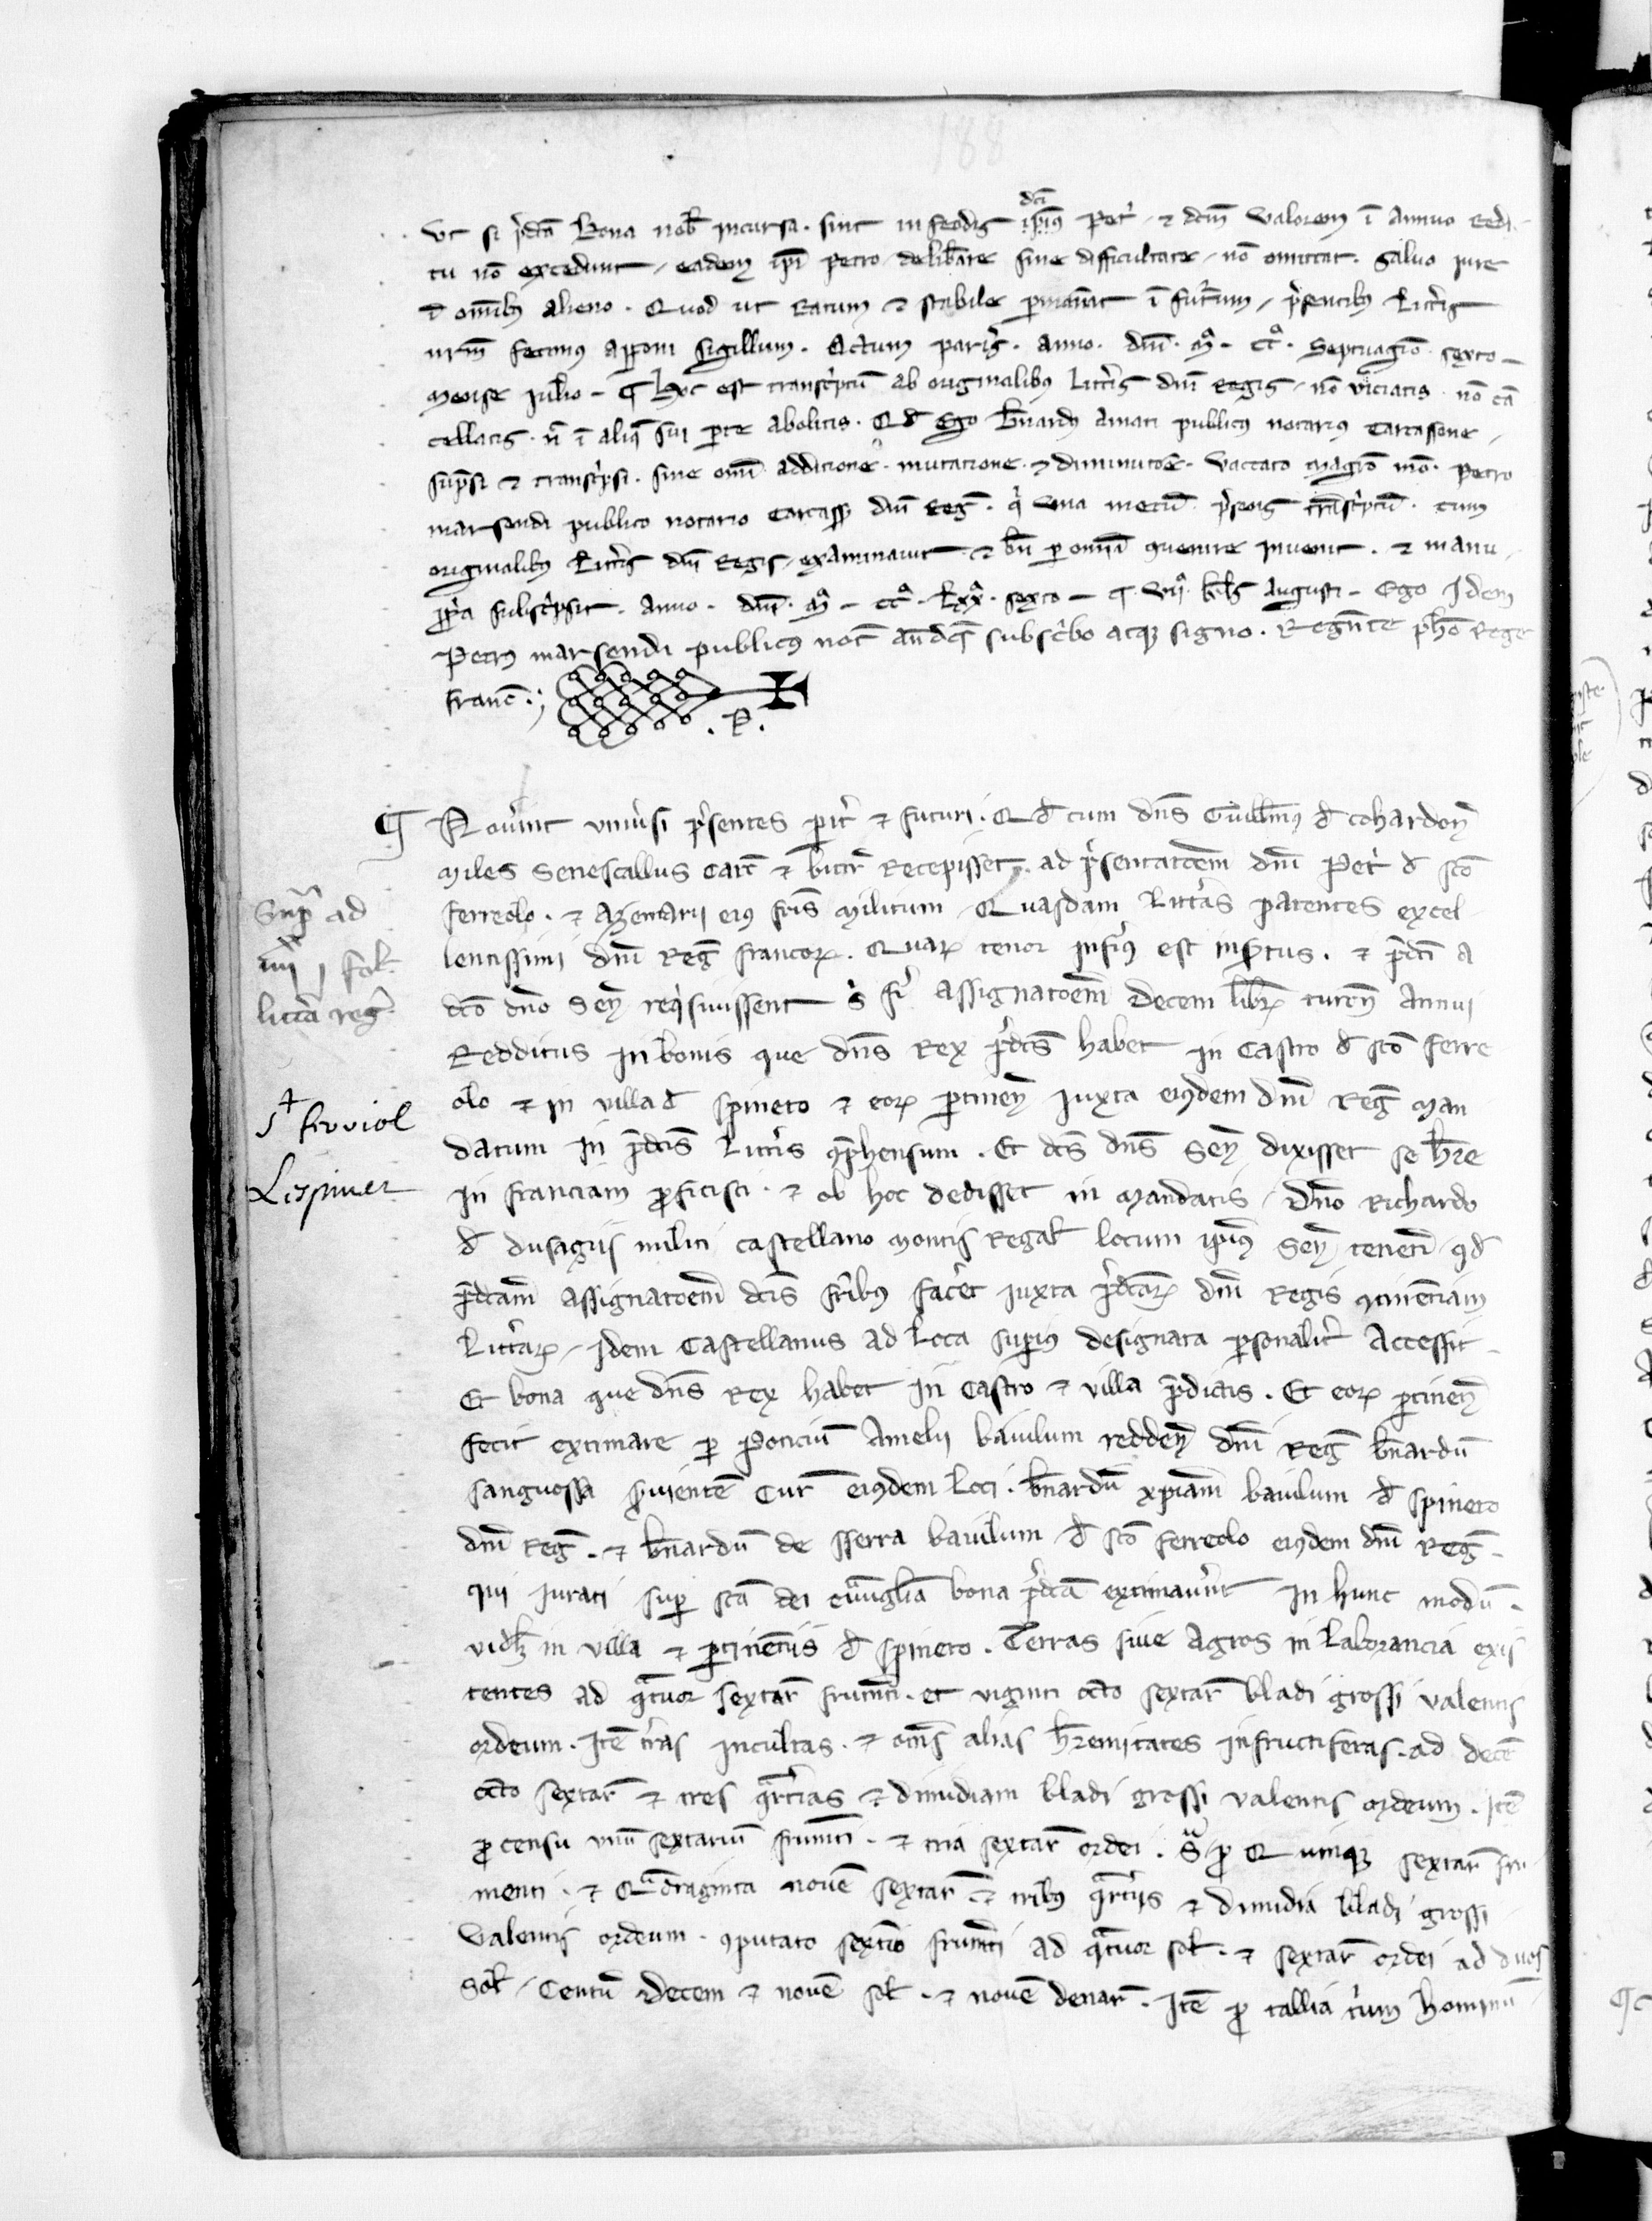 188
dci
Ut si pdca bona nob incursa. sint in feodis ipius Pet. et dcm valorem i annuo redi-
tu no excedunt, eadem ipi Petro delibare sine difficultate, no omittat. Salvo iure
i omibus alieno. Quod ut ratum et stabile pmaneat i futurum, psentibus littis
nrm fecimus apponi sigillum. Actum paris. anno. dni. mº. ccº. septuagio sexto.
mense iulio. ¶ Hoc est transcptu ab originalibus littis dni Regis, no viciatis. no can
cellatis. n i aliq sui pte abolitis. Qd Ego bnardus amati publicus notarius Carcassone,
supsi et transcpsi. sine omi additione. mutatione. et diminutoe. vocato magro meo. Petro
marsendi publico notario Carcass dni Reg. qi una mecu psens transcptu. cum
originalibus littis dni Regis, examinavit. et bn p omia quenire invenit. et manu
ppa subscpsit. anno. dni. mº. ccº. lxxº. sexto. ¶ vii kls augusti. Ego Idem
Petrus marsendi publicus not andcs subscbo atque signo. Regnte pho Rege
franc.
.P.
¶ Novint univsi psentes pit et futuri. Qd cum dns Guillmus d cohardon
miles Senescallus Carc et bitr recepisset. ad psentatoem dni Pet d sco
ferreolo. et Azemarii eius fris militum, Quasdam Littas patentes excel
lentissimi dni Reg francor. Quar tenor infius est insptus. et pdci a
dco dno Sen reqsivissent s fi assignatoem decem libr turon annui
Redditus in bonis que dns Rex pdcs habet in Castro d sco ferre
olo et in villa d spineto et eor ptinen iuxta eiusdem dni Reg man
datum in pdcis Littis qphensum. Et dcs dns Sen dixisset se hre
in franciam pficisci. et ob hoc dedisset in mandatis, dno Richardo
d dusagiis militi castellano montis Regal locum ipius Sen tenenti qd
pdcam assignatoem dcis fribus facet iuxta pdcar dni Regis qtinentiam
Littar, Idem Castellanus ad loca supius designata psonalit accessit
Et bona que dns Rex habet in Castro et villa pdictis. Et eor ptinen
fecit extimare p Ponciu Amelii baiulum redden dni Reg bnardu
sanguossa svientem Cur eiusdem loci. bnardu xpiam baiulum d spineto
dni Reg. et bnardu de sserra baiulum d sco ferreolo eiusdem dni Reg.
qui iurati sup sca dei evanglia bona pdca extimavnt in hunc modu.
vidlz in villa et ptinentiis d spineto. Terras sive agros in laborancia exis
tentes ad qatuor sextar frumti. et viginti octo sextar bladi grossi valentis
ordeum. Ite tras incultas. et oms alias hremitates infructiferas. ad dece
octo sextar et tres qartias et dimidiam bladi grossi valentis ordeum. Ite
p censu unu sextariu frumti. et tria sextar ordei. Sa p Quinque sextar fru
menti. et Qadraginta nove sextar et tribus qartiis et dimidia bladi grossi
valentis ordeum. qputato sextio frumti ad qatuor sol. et sextar ordei ad duos
Sol. Centu decem et nove sol. et nove denar. Ite p tallia trium hominu
Sup ad
iiii fol
littera reg
St ferriol
Lespinet